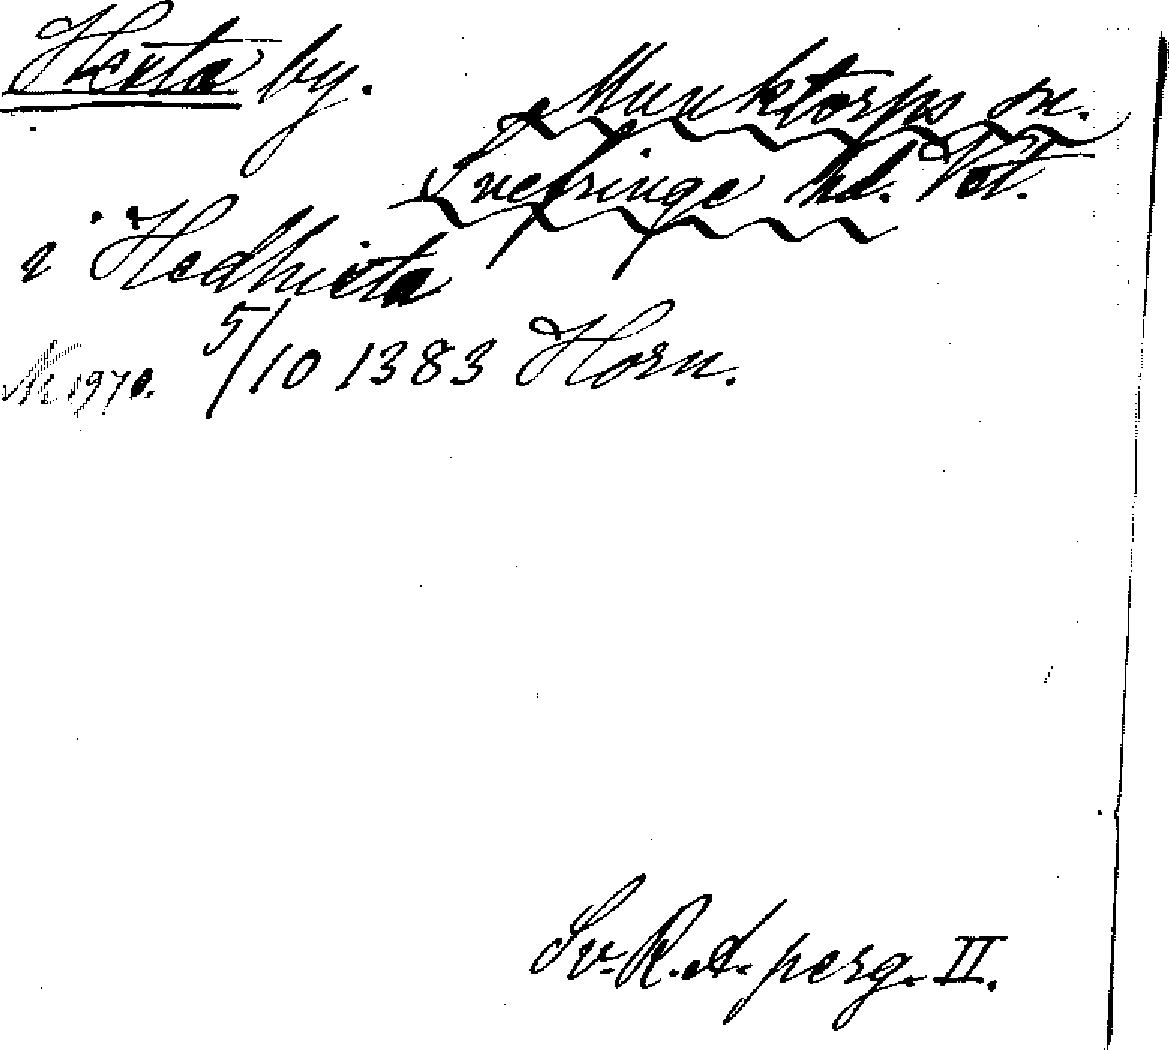 Hevta by.
Munktorps sn.
Snefringe hd. Vstl.
i Hedhieta
No 1970. 5/10 1383 Horn.
Sv. R. A. perg. II.